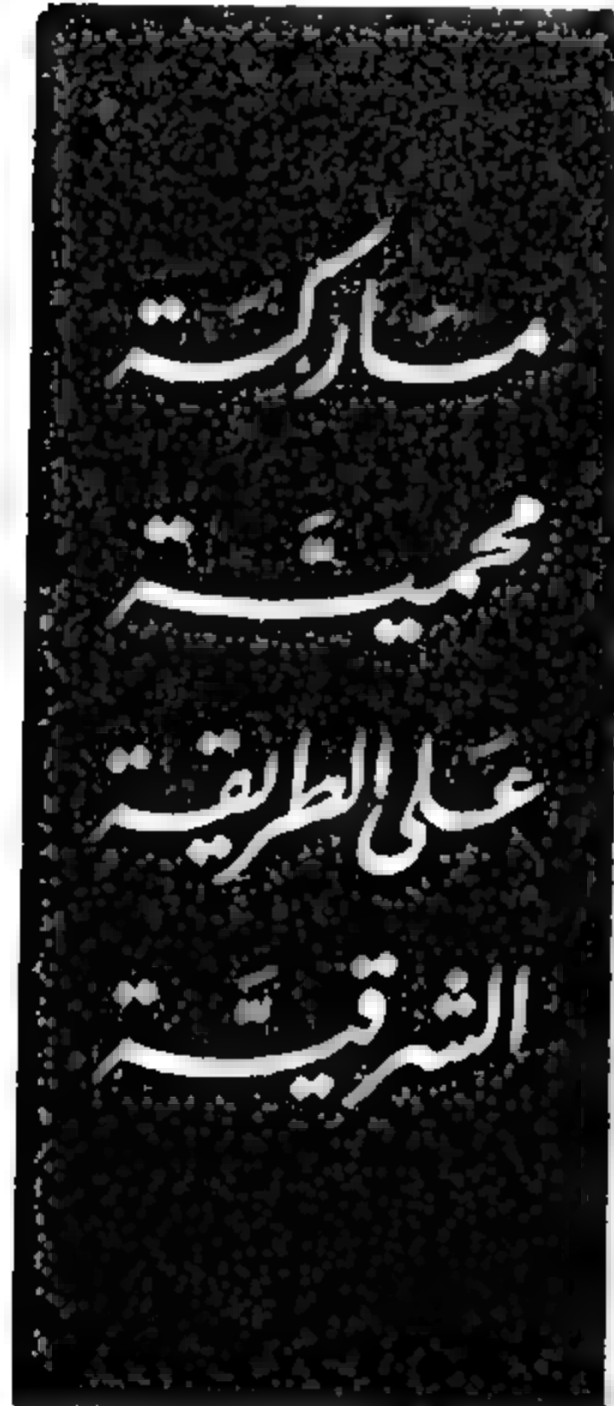 مَاركَة
محميَّة
عَلى الطريقة
الشرقيَّة